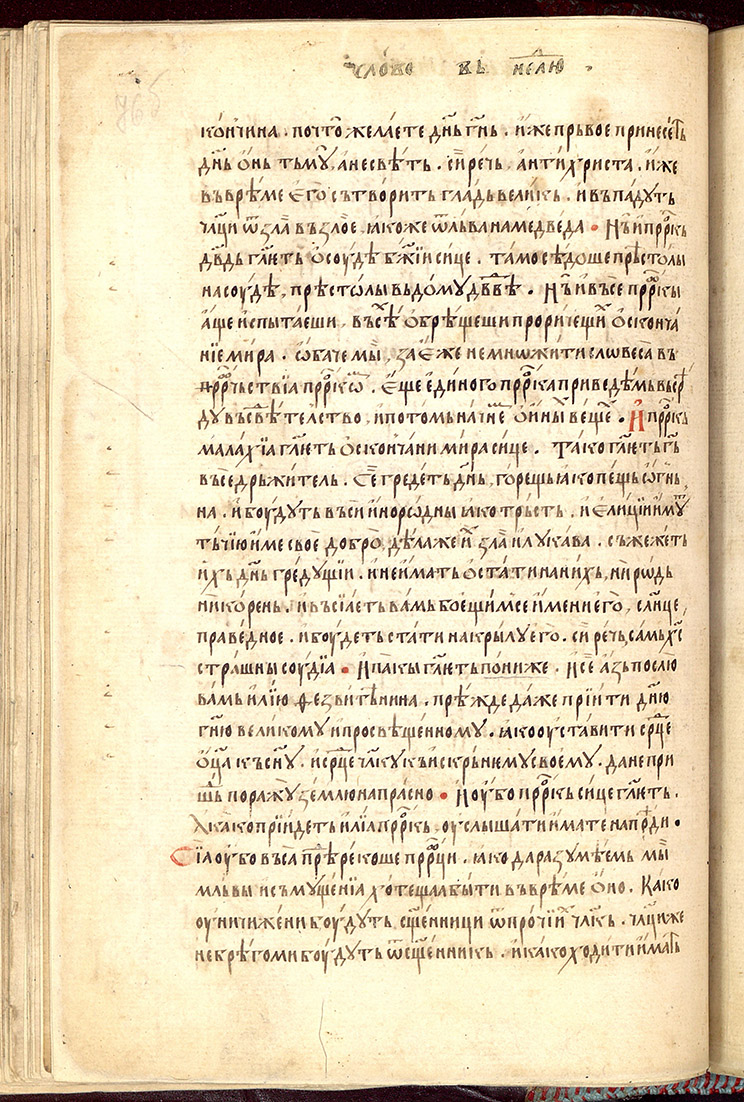 слово въ нелю
кон҄чина. почто желаете днь гнь. иже прьвое принесеть
днь онь тьму, а не свѣть. си рѣчь, антихриста. иже
въ врѣме его сътворить гладь великь. и въпадуть
чл҃ци ѿ зла въ злое, ꙗкоже ѿ льва на медведа • Нъ и прр҃кь
дв҃дь гл҃еть о соудѣ бж҃їи сице. тамо седоше прѣстолы
на соудѣ, прѣстолы вь дому дв҃вѣ. Нъ и въсе прр҃кы
аще испытаеши, въ всѣⷯ обрѣщеши прорич҄ещиⷯ о сконча
нїе мира. ѡбаче мы, за еже не мнѡжити словеса въ
прр҃чьствїа прр҃кѡⷡ. Еще единого прр҃ка приведѣмь въ срⷣѣ
ду въ свⷣѣтелство, и потомь начнеⷨ о ины вещеⷯ. И прр҃кь
малахїа гл҃еть о скончани мира сице. Тако гл҃еть гь҃
въседрьжитель. Се гредеть днь, горещь ꙗко пещь ѡгнь
на. и боудуть въси инорѡдны ꙗко трьсть. и елици и иму
тъчїю име свое добро, дѣла же иⷯ зла и лукава. съжежеть
ихь днь гредущїи. и не имать остати на нихь, ни рѡдь
ни корень. и въсїаеть вамь боещимсе имени его, слнце
праведное. и боудеть стати на крылу его. си рѣчь, самь хс҃
страшны соудїа • И пакы гл҃еть пониже. И се азь послю
вамь илїю ѳезвитѣнина. прѣжде даже прїити дню
гню великому и просвѣщенному. ꙗко оуставити срⷣце
оц҃а къ сн҃у. и срⷣце чл҃ку къ искрьнему своему. да не при
шьⷣ поражу землю напрасно • И оубо прр҃кь сице гл҃еть.
А како прїидеть илїа прр҃кь, оуслышати имате напрѣди.
Сїа оубо въса прѣрекоше прр҃ци. ꙗко да разумѣемь мы
мльвы и съмущенїа хотещаа быти въ врѣме оно. Како
оуничижени боудуть сщ҃енници ѿ прочїиⷯ чл҃кь. чл҃ци же
небрѣгоми боудуть ѿ сщ҃енникь. и како ходити имать